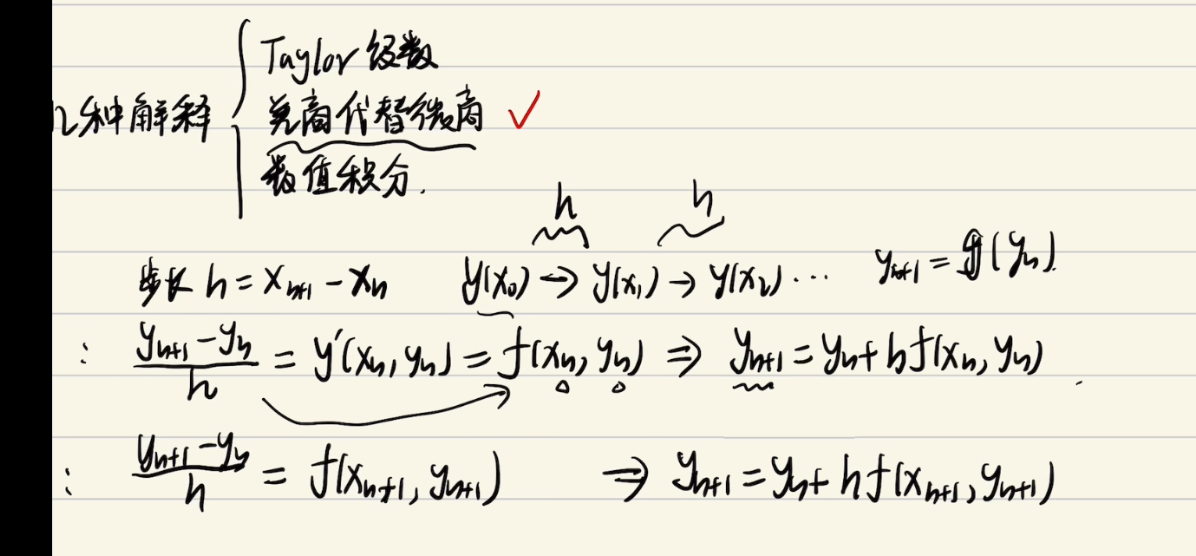 几种解释 { Taylor 级数
差商代替微商 ✓
数值积分.
h h
步长 h = x_{n+1} - x_n y(x_0) → y(x_1) → y(x_2) ... y_{n+1} = g(y_n).
: \frac{y_{n+1} - y_n}{h} = y'(x_n, y_n) = f(x_n, y_n) ⇒ y_{n+1} = y_n + h f(x_n, y_n)
: \frac{y_{n+1} - y_n}{h} = f(x_{n+1}, y_{n+1}) ⇒ y_{n+1} = y_n + h f(x_{n+1}, y_{n+1})